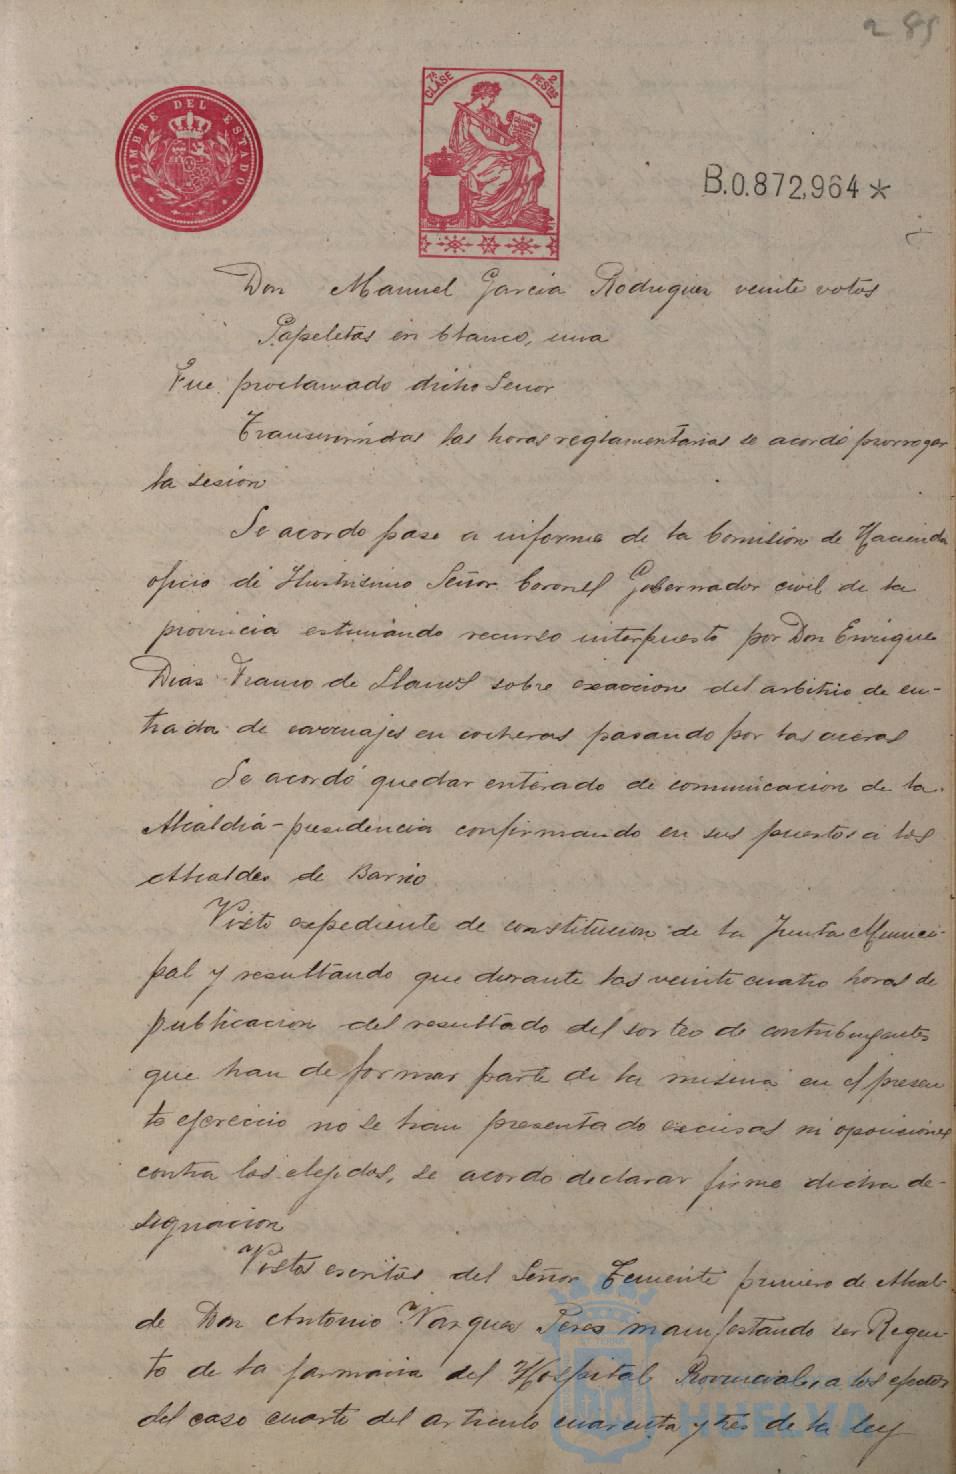 285
TIMBRE DEL ESTADO
7ª CLASE
2 PESTAS
B.0.872,964 *
Don Manuel Garcia Rodriguez veinte votos
Papeletas en blanco, una
Fue proclamado dicho Señor
Transcurridas las horas reglamentarias se acordó prorrogar
la sesion
Se acordo pase a informe de la Comisión de Hacienda
oficio del Ilustrisimo Señor Coronel Gobernador civil de la
provincia estimando recurso interpuesto por Don Enrique
Dias Franco de Llanos sobre exaccione del arbitrio de en-
trada de carruajes en cocheras pasando por las aceras
Se acordó quedar enterado de comunicacion de la
Alcaldia-presidencia confirmando en sus puestos a los
Alcaldes de Barrio
Visto expediente de constitucion de la Junta Munici-
pal y resultando que durante las veinte cuatro horas de
publicacion del resultado del sorteo de contribuyentes
que han de formar parte de la misma en el presen
te ejercicio no se han presentado excusas ni oposiciones
contra los elejidos, se acordo declarar firme dicha de-
signacion
Vistos escritos del Señor Teniente primero de Alcal-
de Don Antonio Vazquez Perez manifestando ser Regen-
te de la farmacia del Hospital Provincial, a los efectos
del caso cuarto del articulo cuarenta y tres de la ley
HUELVA